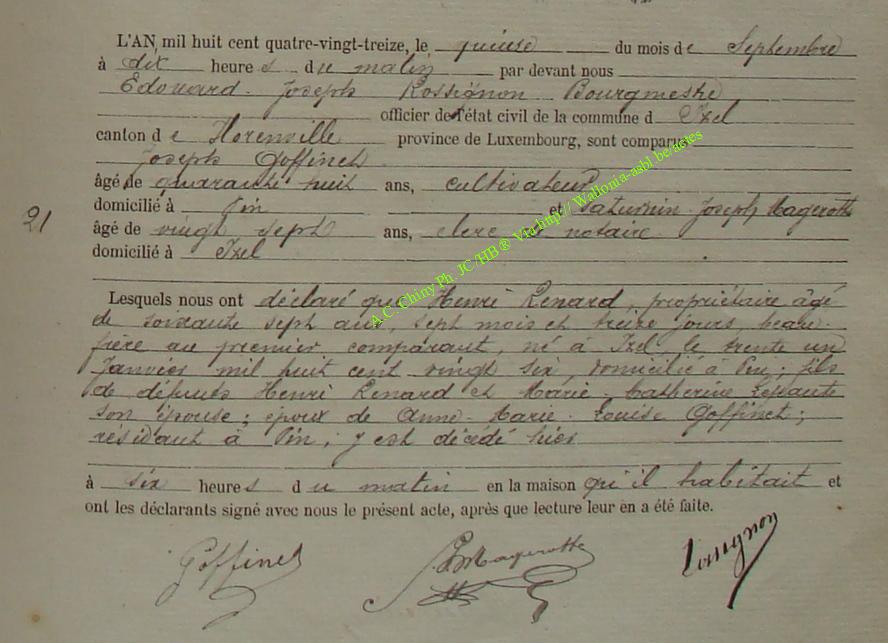 L'AN, mil huit cent quatre-vingt-treize, le quinze du mois de Septembre
à dix heures du matin par devant nous
Edouard Joseph Rossignon Bourgmestre
officier de l'état civil de la commune d Izel
canton de Florenville province de Luxembourg, sont comparus
Joseph Goffinet
âgé de quarante huit ans, cultivateur
domicilié à Pin et Saturnin Joseph Magerotte
21
âgé de vingt sept ans, clerc de notaire
domicilié à Izel
A.C. Chiny Ph. JC/HB® Via http// Wallonia-asbl.be/actes
Lesquels nous ont déclaré que Henri Renard, propriétaire âgé
de soixante sept ans, sept mois et treize jours, beau-
frère au premier comparant, né à Izel, le trente un
Janvier mil huit cent vingt six, domicilié à Pin; fils
de défunts Henri Renard et Marie Catherine
son épouse; époux de Anne-Marie-Louise Goffinet;
résidant à Pin, y est décédé hier
à six heures du matin en la maison qu'il habitait et
ont les déclarants signé avec nous le présent acte, après que lecture leur en a été faite.
Goffinet Magerotte Rossignon